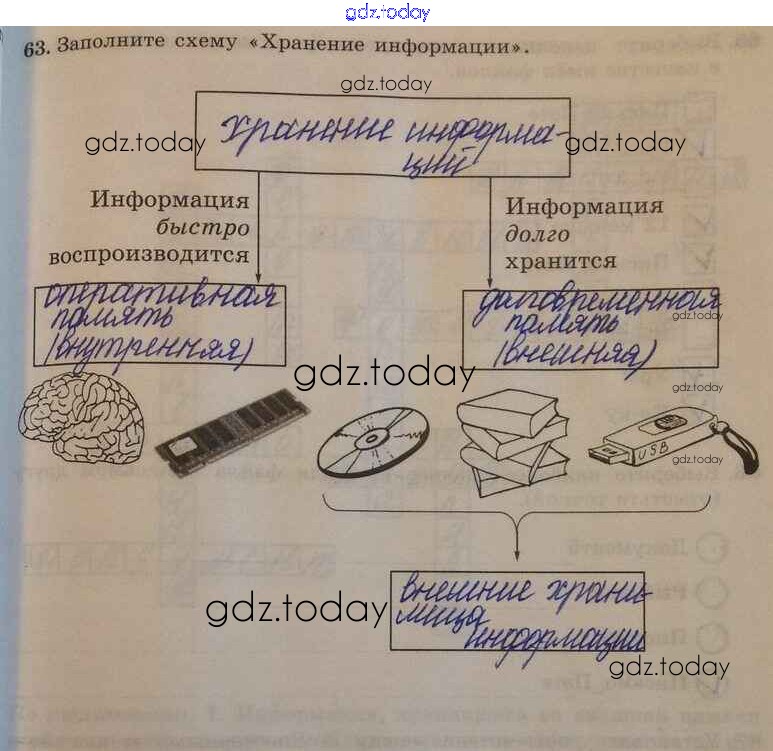 gdz.today
63. Заполните схему «Хранение информации».
gdz.today
gdz.today
хранение информа-
ций
gdz.today
Информация
быстро
воспроизводится
Информация
долго
хранится
оперативная
память
(внутренняя)
долговременная
память
(внешняя)
gdz.today
gdz.today
gdz.today
USB
gdz.today
внешние храни-
лища
информации
gdz.today
gdz.today